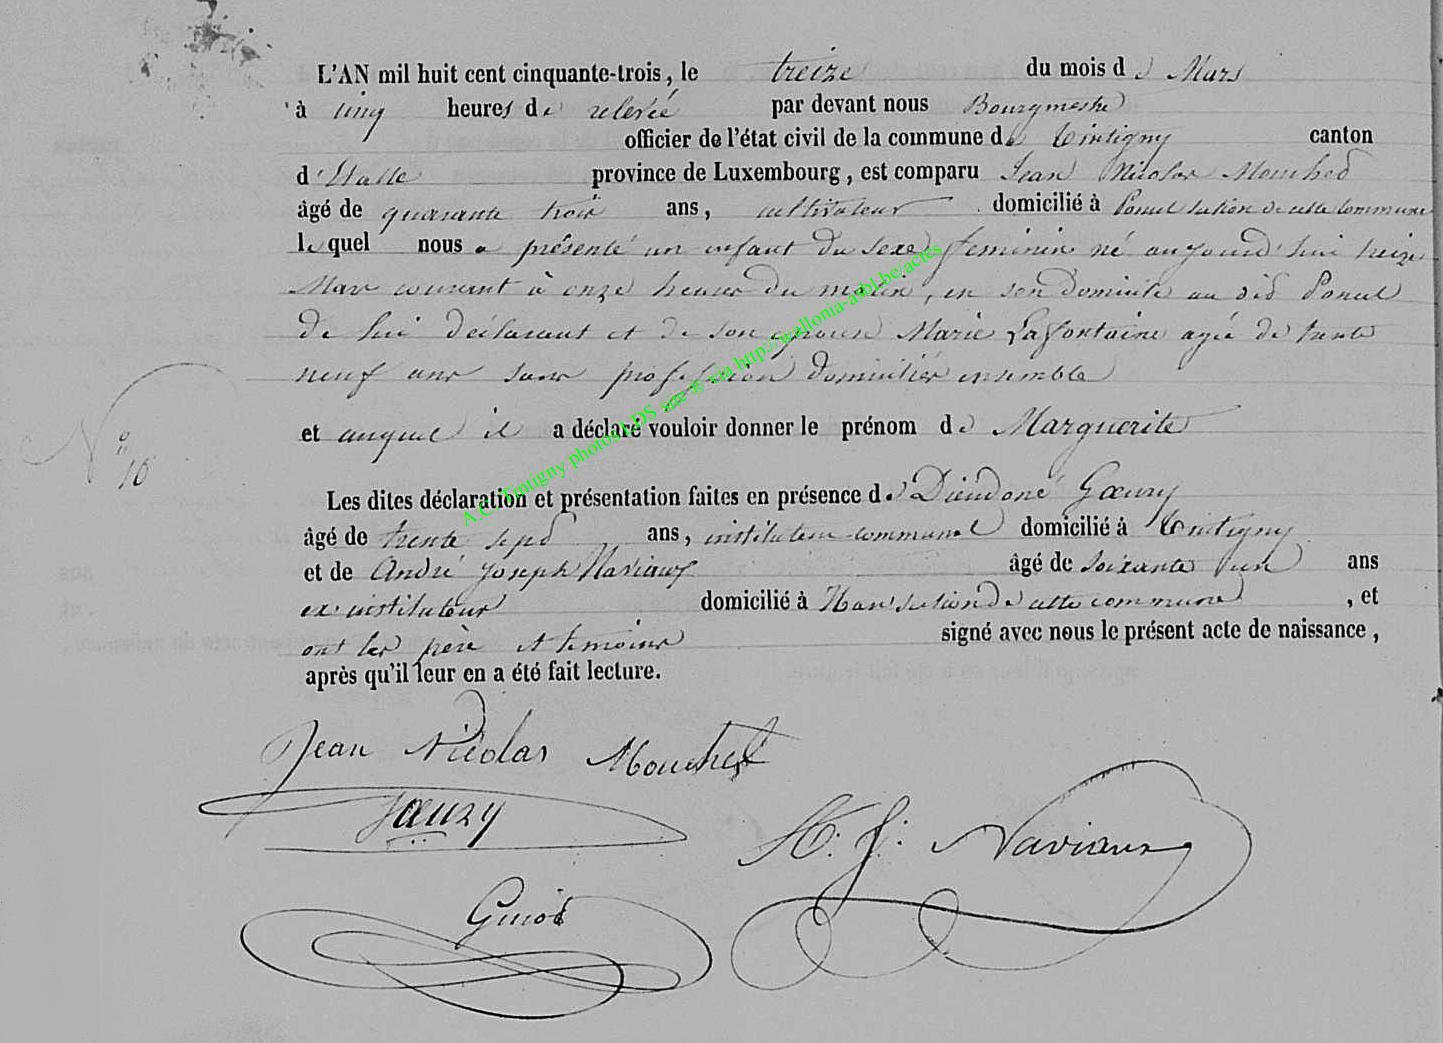 L'AN mil huit cent cinquante-trois, le treize du mois de Mars
à cinq heures de relevée par devant nous Bourgmestre
officier de l'état civil de la commune de Tintigny canton
d'Etalle province de Luxembourg, est comparu Jean Nicolas Mouchet
âgé de quarante trois ans, cultivateur domicilié à Poncel section de cette commune
lequel nous a présenté un enfant du sexe feminin né aujourd'hui treize
Mars courant à onze heures du matin, en son domicile au dit Poncel
de lui déclarant et de son épouse Marie Lafontaine agée de trente
neuf ans sans profession domiciliés ensemble
et auquel il a déclaré vouloir donner le prénom de Marguerite
N° 10
Les dites déclaration et présentation faites en présence de Dieudoné Gœury
âgé de trente sept ans, instituteur communal domicilié à Tintigny
et de André Joseph Naviaux âgé de soixante un ans
ex instituteur domicilié à Han section de cette commune, et
ont les père et témoins signé avec nous le présent acte de naissance,
après qu'il leur en a été fait lecture.
Jean Nicolas Mouchet
Gœury
A. J. Naviaux
Guiot
A.C. Tintigny photos LDS via http://wallonia-asbl.be/actes